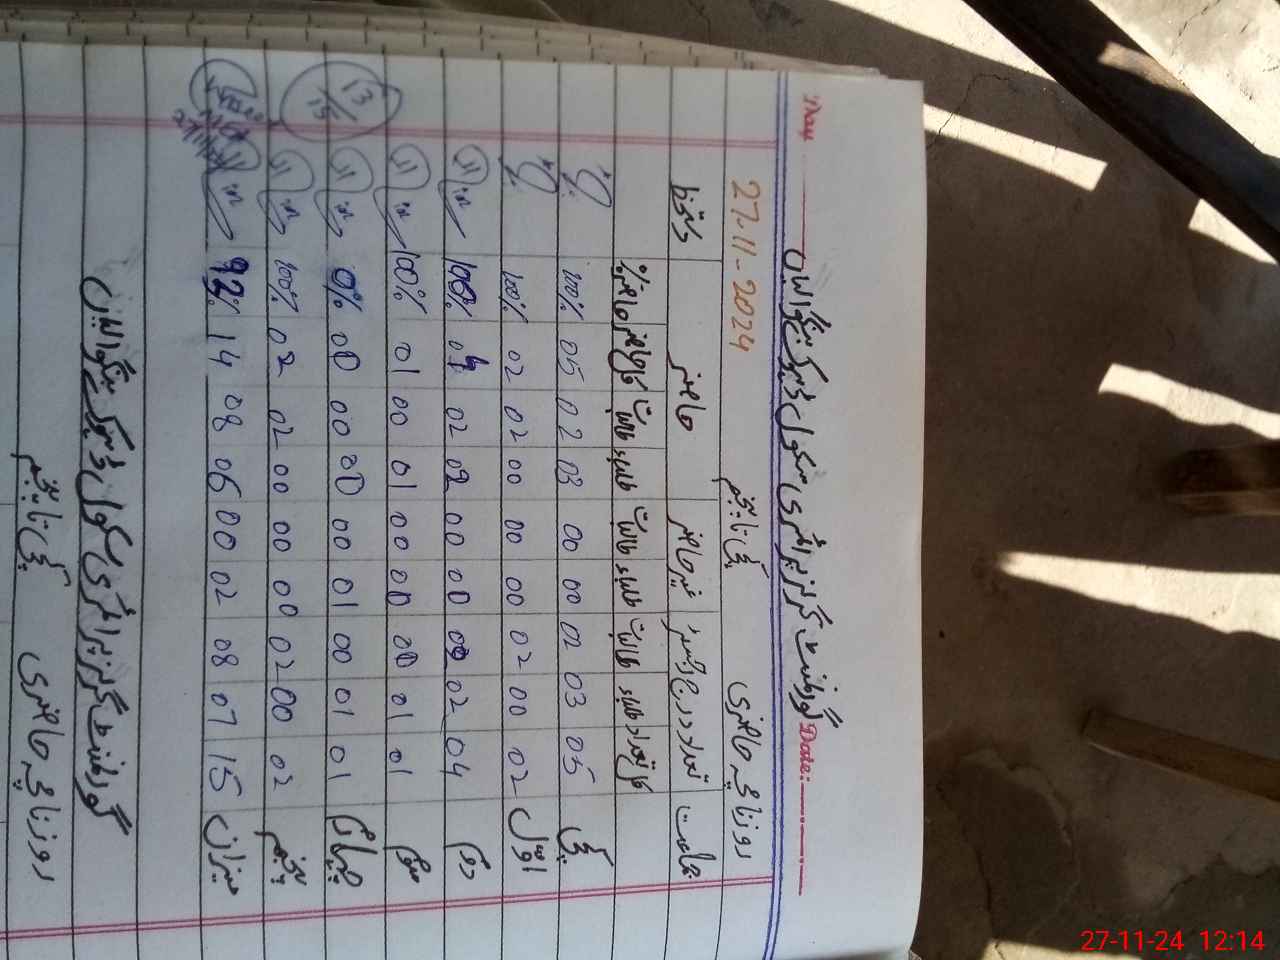 Day Date:
گورنمنٹ گرلز پرائمری سکول
روزنامچہ حاضری کچی تا پنجم 27-11-2024
جماعت تعداد درج رجسٹر غیر حاضر حاضر دستخط
کل تعداد طلباء طالبات طلباء طالبات طلباء طالبات کل حاضر حاضری%
کچی 05 03 02 00 00 03 02 05 100%
اول 02 00 02 00 00 00 02 02 100%
دوم 04 02 02 00 00 02 02 04 100%
سوم 01 01 00 00 00 01 00 01 100%
چہارم 01 01 00 01 00 00 00 00 0%
پنجم 02 00 02 00 00 00 02 02 100%
میزان 15 07 08 02 00 06 08 14 92%
13/15
گورنمنٹ گرلز پرائمری سکول
روزنامچہ حاضری کچی تا پنجم
27-11-24 12:14